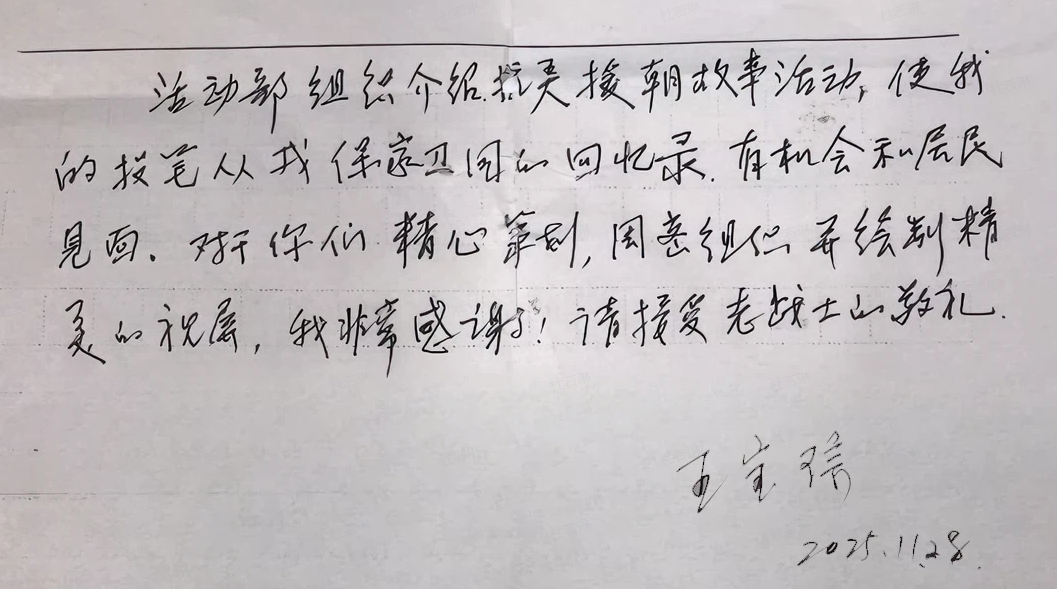 活动部组织介绍抗美援朝故事活动,使我
的投笔从戎保家卫国的回忆录.有机会和居民
见面.对于你们精心策划,周密组织并绘制精
美的视屏,我非常感谢!请接受老战士的敬礼.
王宝瑞
2025.11.28.